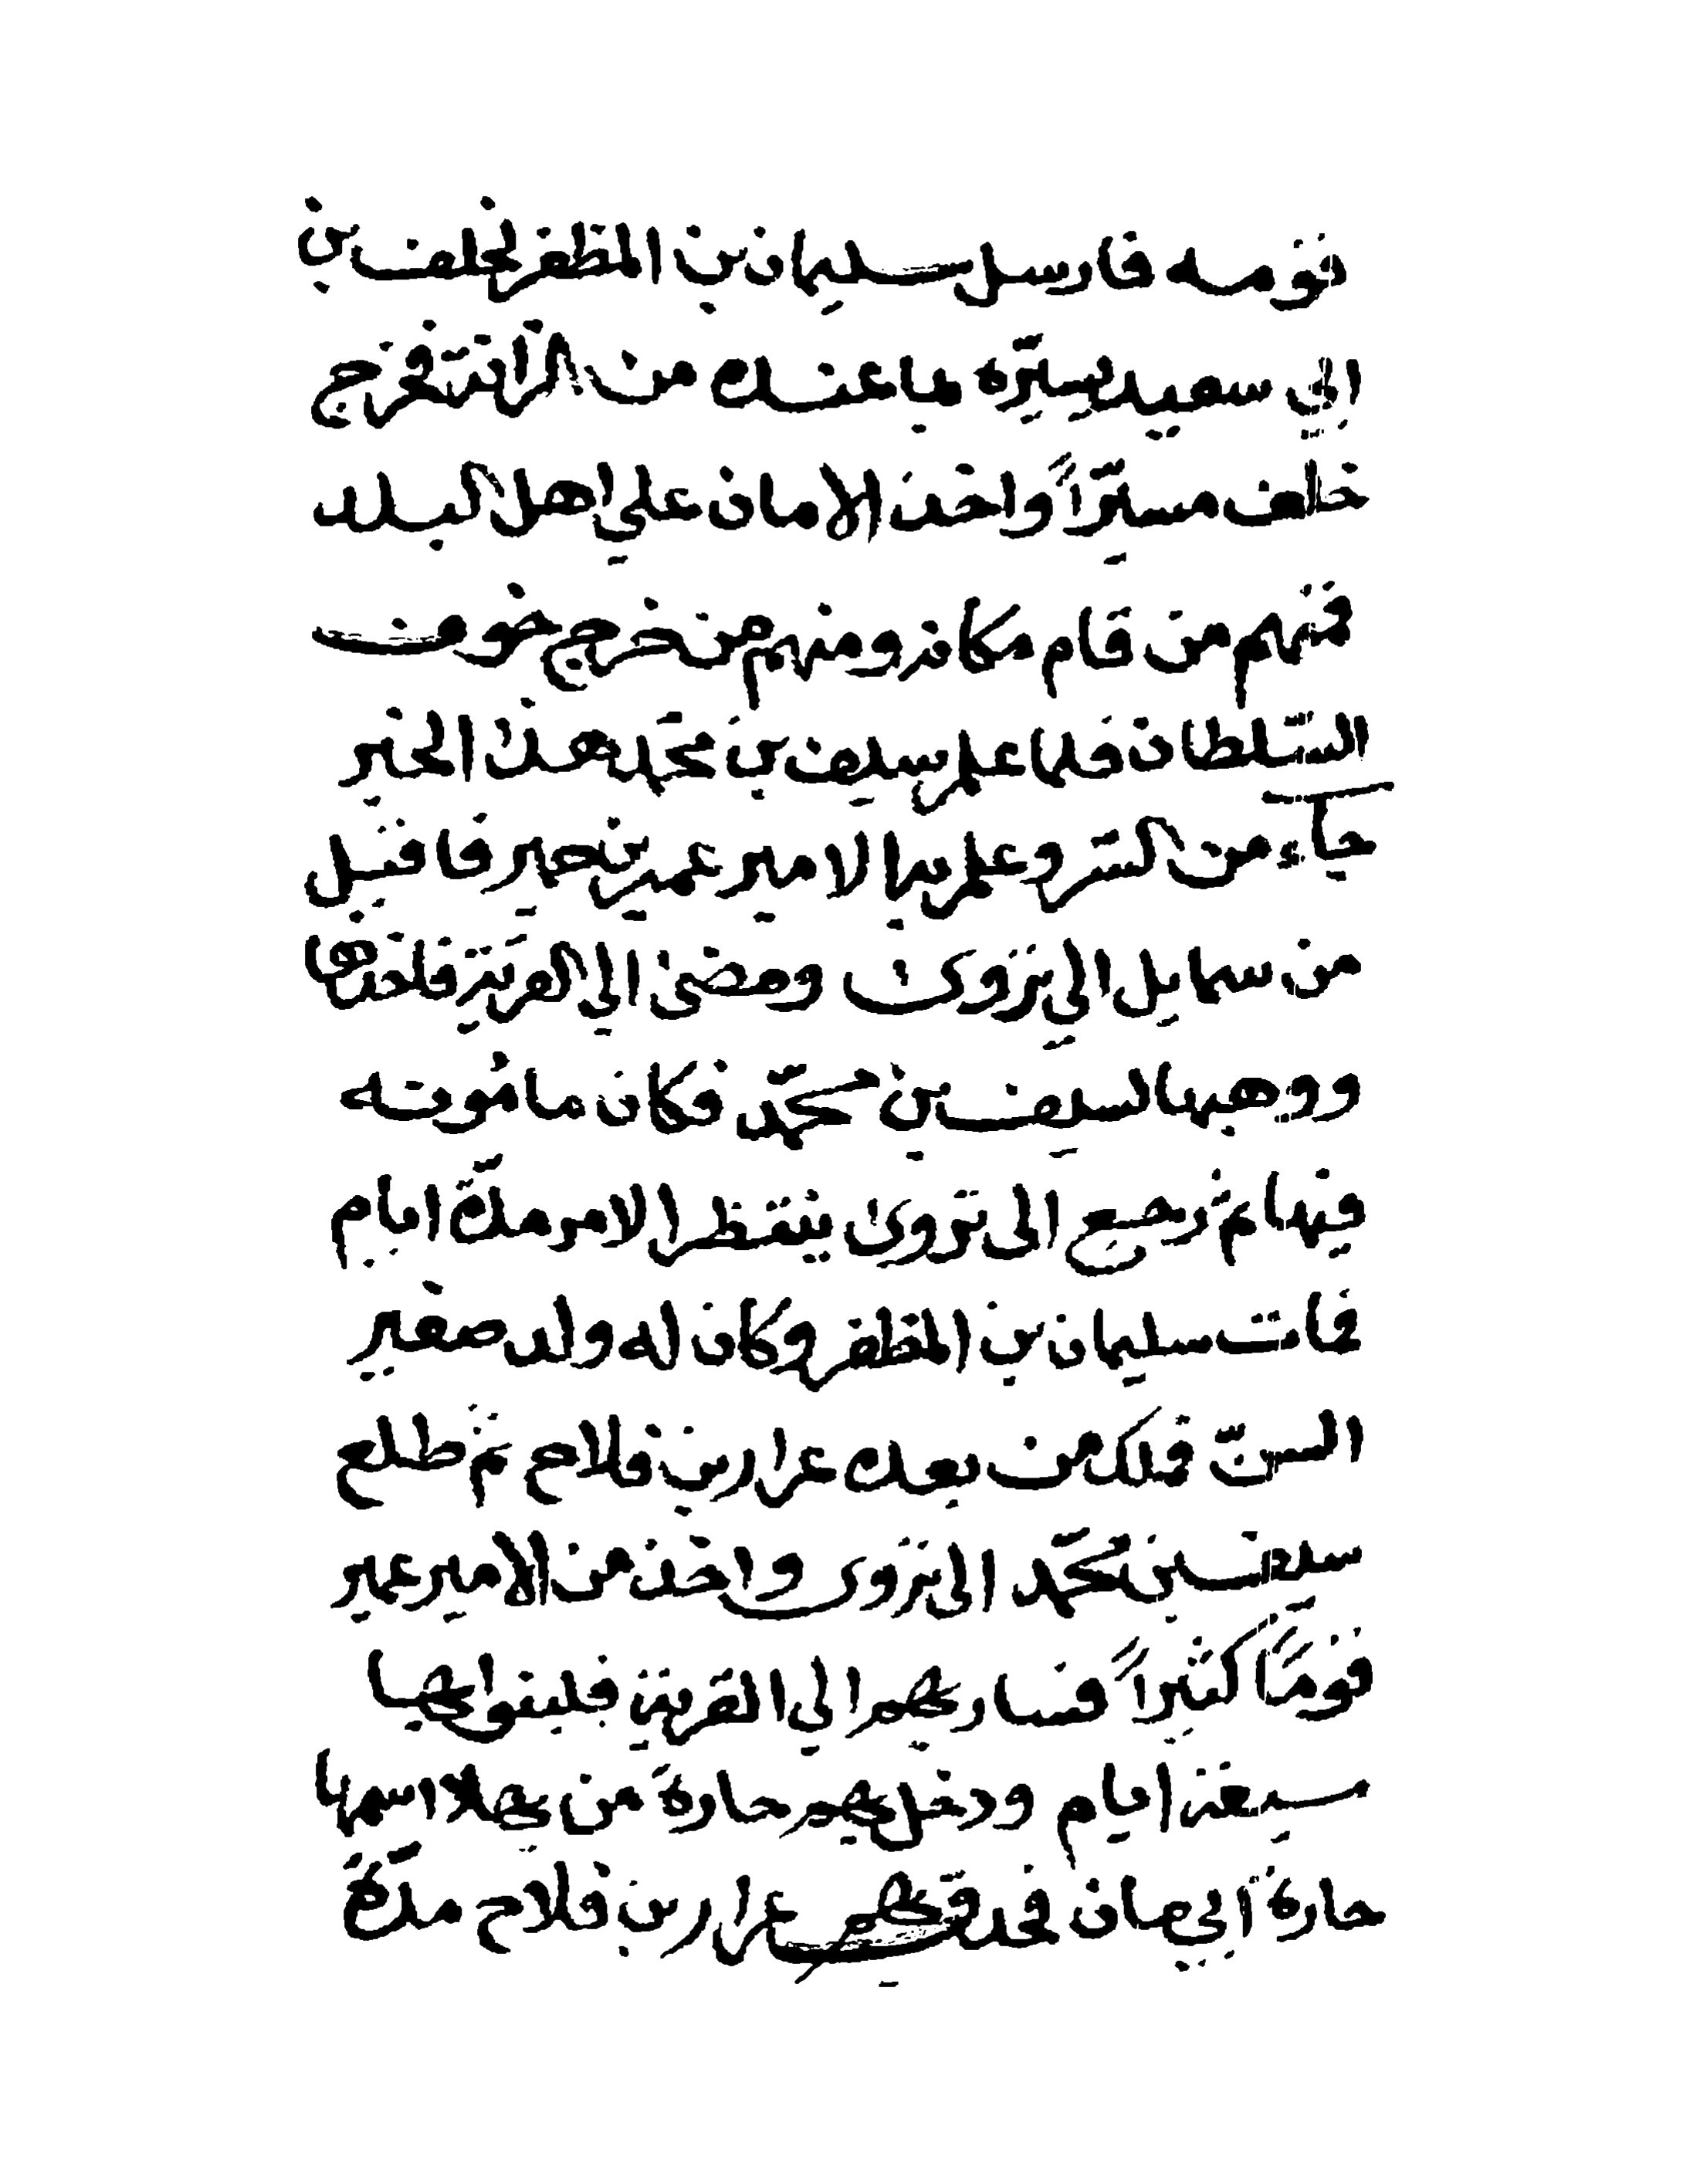 قومه فارسل سليمان بن المظفر لخلف بن
ابي سعيد يسيّره بما عنده من الزانة فخرج
خلف مسيّراً واخذ الامان علي اهل البلد
فمنهم من قام مكانه ومنهم من خرج خوف من
السّلطان فلما علم سيف بن محمّد هذا الخبر
جآء من السّر وعلم بها الامير عمير بن حمير فاقبل
من سمايل الي نزوى ومضى الي القرية فاخذها
ووهبها لسيف بن محمّد فكان مامُونه
فيها ثم رجع الى نزوى ينتظر الامر مدّة ايام
فمات سليمان بن المظفر وكان له ولد صغير
السنّ فملك من بعده عرار بن فلاح ثم طلع
سيف بن محمّد الى نزوى واخذ من الامير عمير
قومًا كثيراً فسار بهم الي القرية فلبثوا بها
سبعة ايام ودخل بهم حارة من بهلا اسمها
حارة ابي مان فحدق بهم عرار بن فلاح مدّة